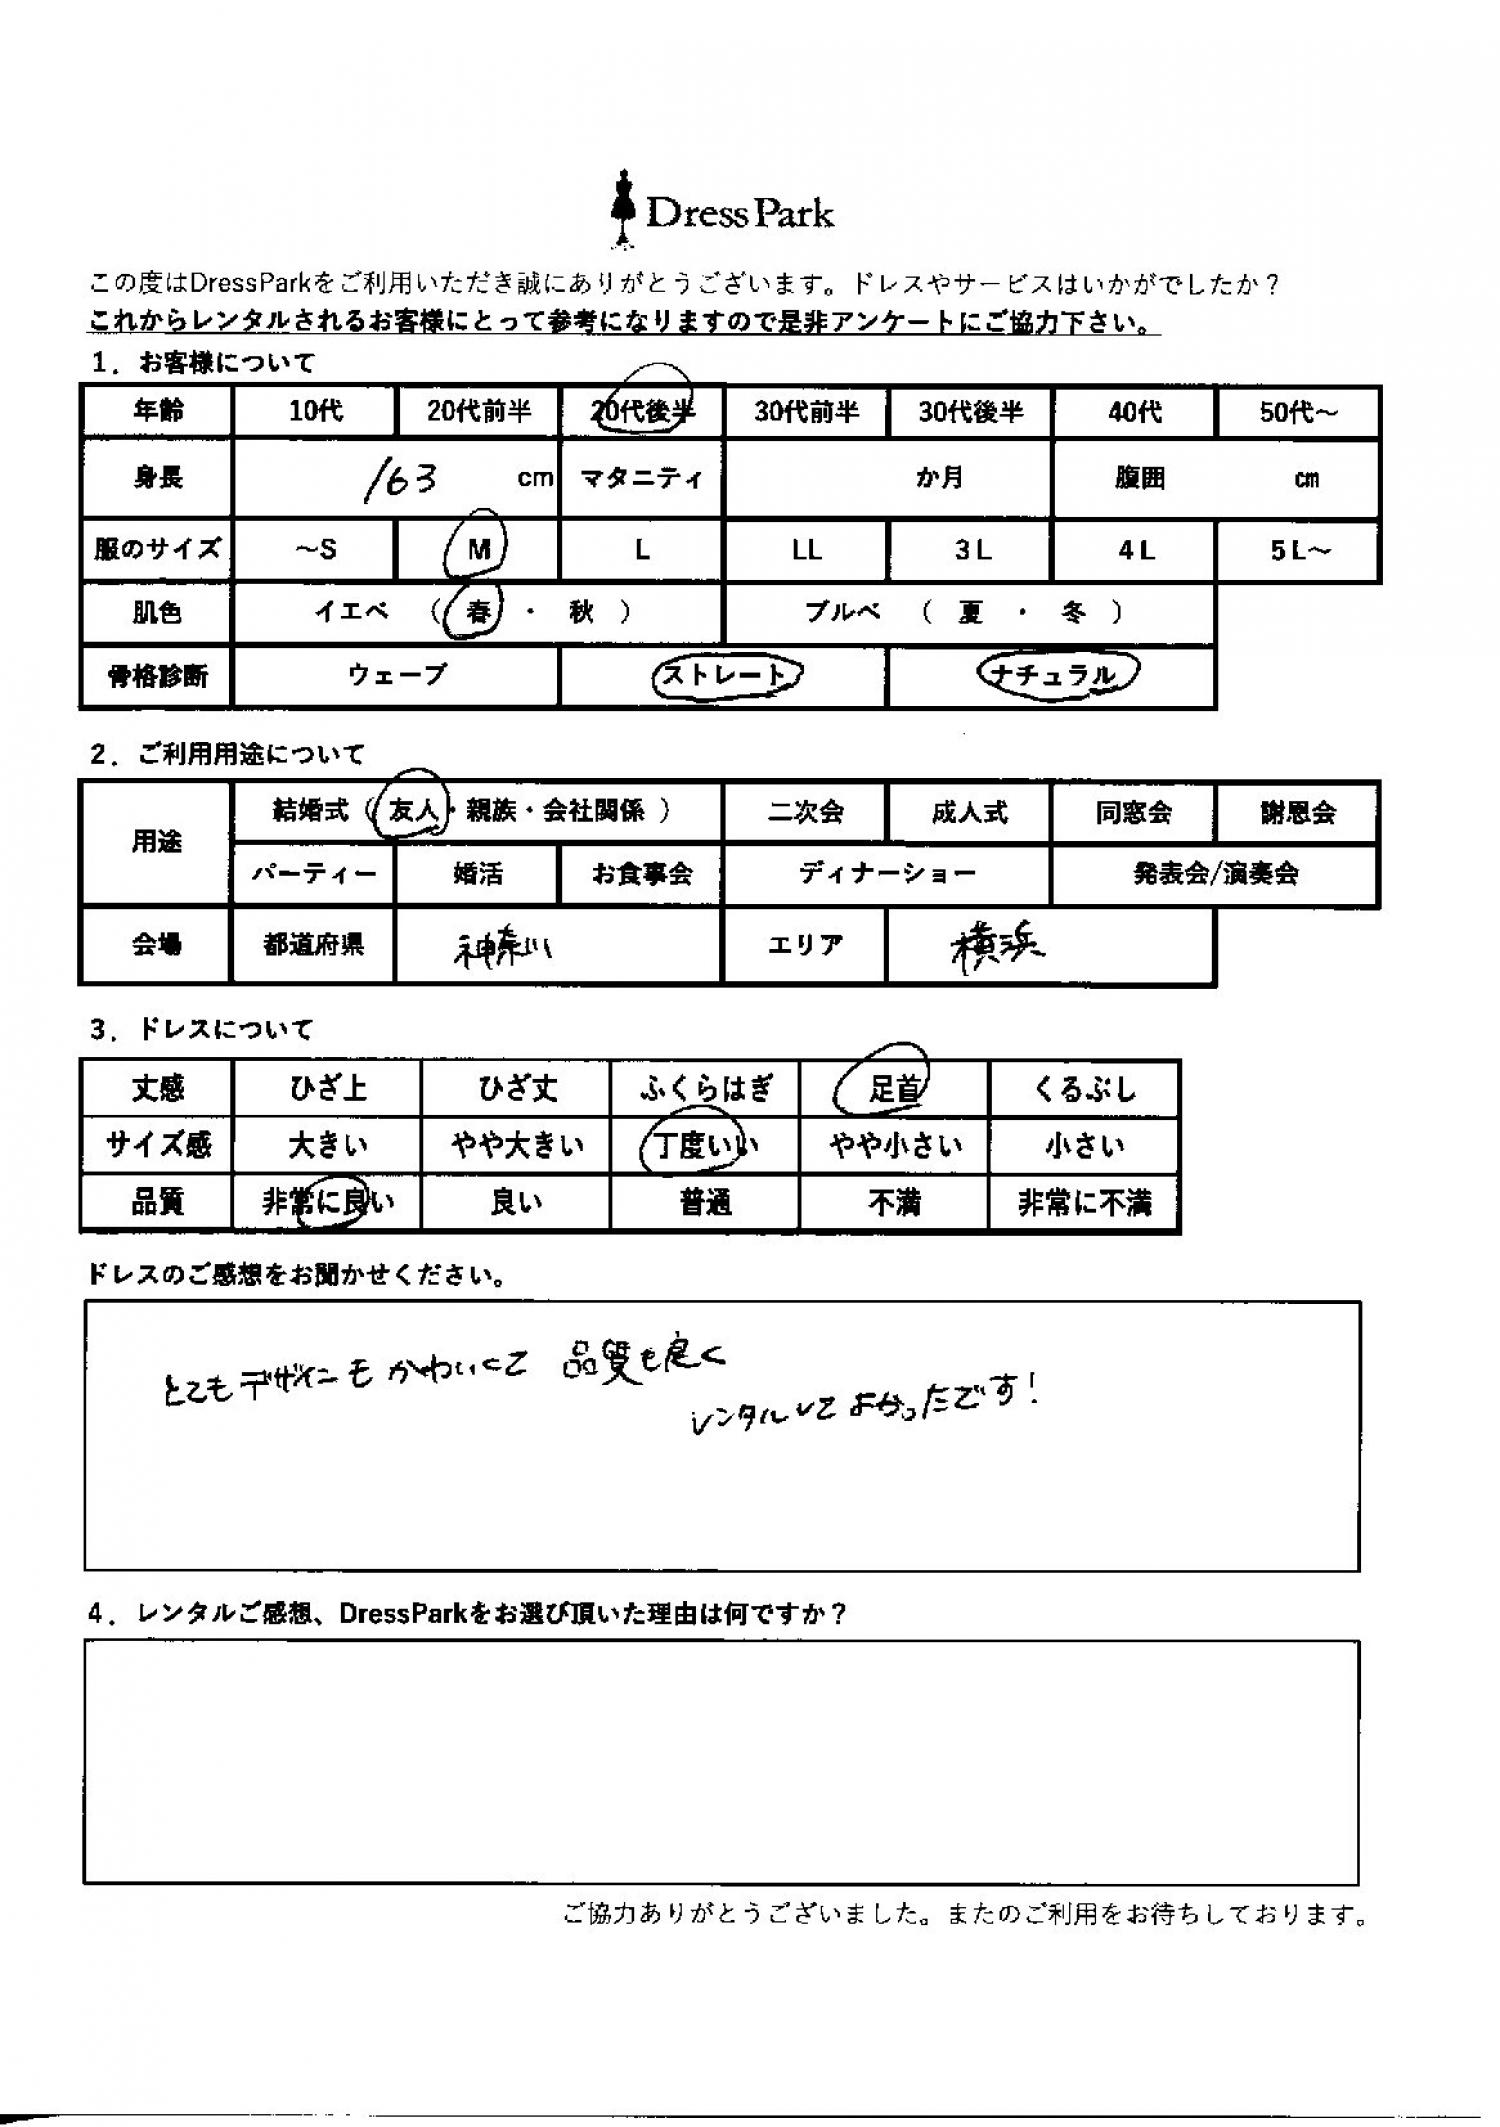 Dress Park
この度はDressParkをご利用いただき誠にありがとうございます。ドレスやサービスはいかがでしたか？
これからレンタルされるお客様にとって参考になりますので是非アンケートにご協力下さい。
1．お客様について
年齢 10代 20代前半 20代後半 30代前半 30代後半 40代 50代～
身長 163 cm マタニティ か月 腹囲 cm
服のサイズ ～S M L LL 3L 4L 5L～
肌色 イエベ （ 春 ・ 秋 ） ブルベ （ 夏 ・ 冬 ）
骨格診断 ウェーブ ストレート ナチュラル
2．ご利用用途について
用途 結婚式（ 友人・親族・会社関係 ） 二次会 成人式 同窓会 謝恩会
パーティー 婚活 お食事会 ディナーショー 発表会/演奏会
会場 都道府県 神奈川 エリア 横浜
3．ドレスについて
丈感 ひざ上 ひざ丈 ふくらはぎ 足首 くるぶし
サイズ感 大きい やや大きい 丁度いい やや小さい 小さい
品質 非常に良い 良い 普通 不満 非常に不満
ドレスのご感想をお聞かせください。
とてもデザインもかわいくて 品質も良く
レンタルしてよかったです！
4．レンタルご感想、DressParkをお選び頂いた理由は何ですか？
ご協力ありがとうございました。またのご利用をお待ちしております。